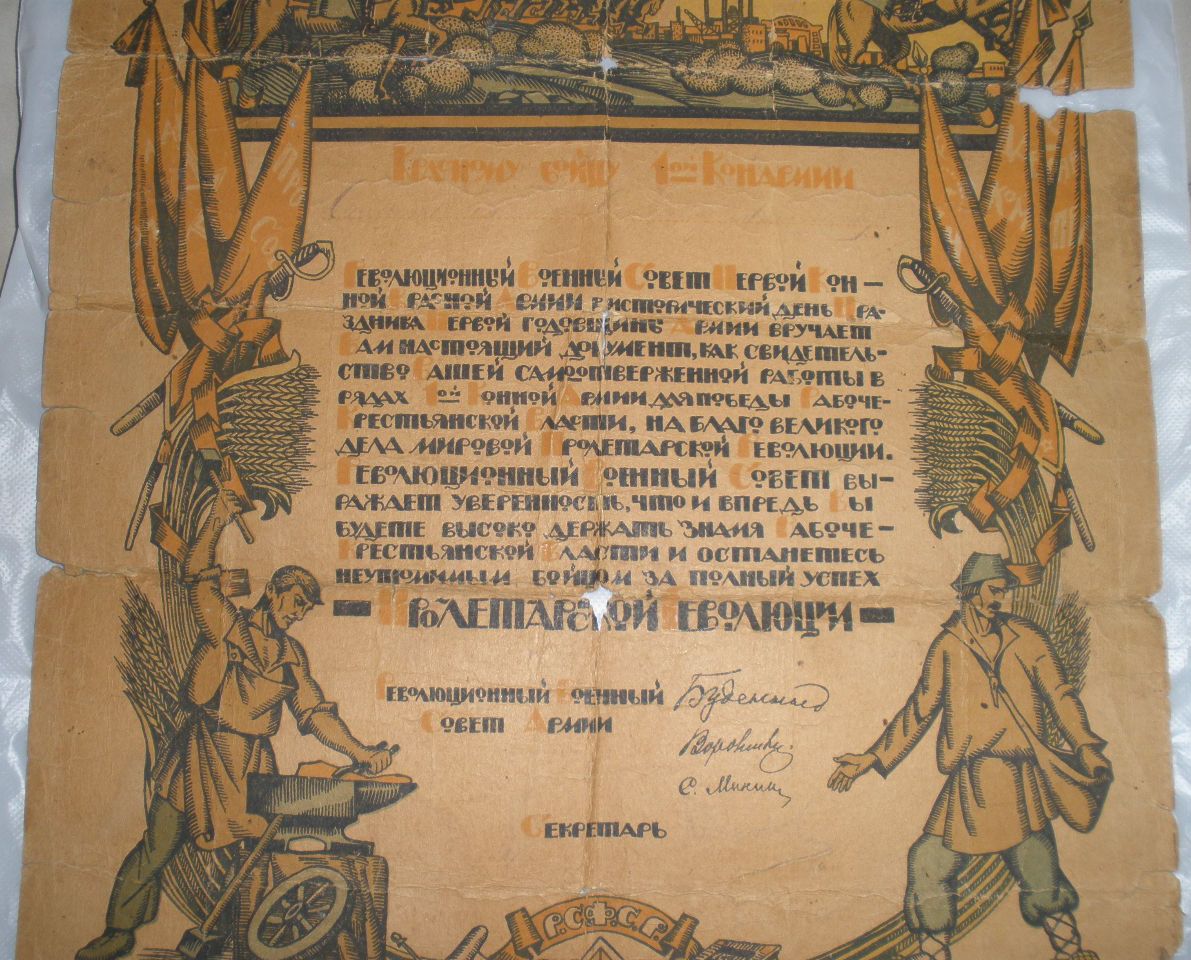 Красному бойцу 1ой Конармии
Революционный Военный Совет Первой Кон-
ной Красной Армии в исторический день Пра-
здника Первой Годовщины Армии вручает
Вам настоящий документ, как свидетель-
ство Вашей самоотверженной работы в
рядах 1ой Конной Армии для победы Рабоче-
Крестьянской Власти, на благо великого
дела мировой Пролетарской Революции.
Революционный Военный Совет вы-
ражает уверенность, что и впредь Вы
будете высоко держать знамя Рабоче-
Крестьянской Власти и останетесь
неутомимым бойцом за полный успех
— Пролетарской Революции —
Революционный Военный
Совет Армии
Буденный
Ворошилов
С. Минин
Секретарь
Р.С.Ф.С.Р.